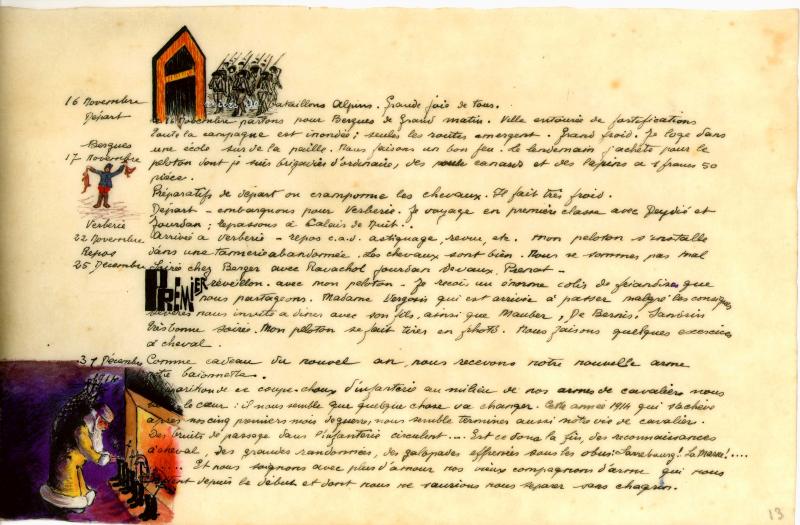 16 Novembre
Départ
Bergues
17 Novembre
Verberie
22 Novembre
Repos
25 Décembre
31 Décembre
bataillons Alpins. Grande joie de tous.
Le 16 Novembre partons pour Bergues de Grand matin. Ville entourée de fortifications
Toute la campagne est inondée ; seules les routes émergent. Grand froid. Je loge dans
une école sur de la paille. Nous faisons un bon feu. Le lendemain j'achète pour le
peloton dont je suis brigadier d'ordinaire, des canards et des lapins à 1 francs 50
pièce.
Préparatifs de départ on cramponne les chevaux. Il fait très froid.
Départ - embarquons pour Verberie. Je voyage en première classe avec Deydié et
Jourdan ; repassons à Calais de Nuit..
Arrivée à Verberie - repos c.a.d. astiquage, revue, etc. mon peloton s'installe
dans une tannerie abandonnée. Les chevaux sont bien. Nous ne sommes pas mal
Soirée chez Berger avec Ravachol Jourdan Devaux, Prenat -
PREMIER réveillon. avec mon peloton - Je reçois un énorme colis de friandises que
nous partageons. Madame Vergosis qui est arrivée à passer malgré les consignes
sévères nous invite à diner avec son fils, ainsi que Mauber, De Bernis, Sandrin
très bonne soirée. Mon peloton se fait tirer en photo. Nous faisons quelques exercices
à cheval.
Comme cadeau du nouvel an, nous recevons notre nouvelle arme
notre baïonnette.
ce coupe-choux d'infanterie au milieu de nos armes de cavalière nous
le cœur : il nous semble que quelque chose va changer. Cette année 1914 qui s'achève
après nos cinq premiers mois de guerre, nous semble terminer aussi notre vie de cavalier.
Des bruits de passage dans l'infanterie circulent .... Est ce donc la fin, des reconnaissances
à cheval, des grandes randonnées, des galopades effrénées sous les obus. Sarrebourg! La Marne!....
..... Et nous soignons avec plus d'amour nos vieux compagnons d'arme qui nous
depuis le début et dont nous ne saurions nous séparer sans chagrin.
13